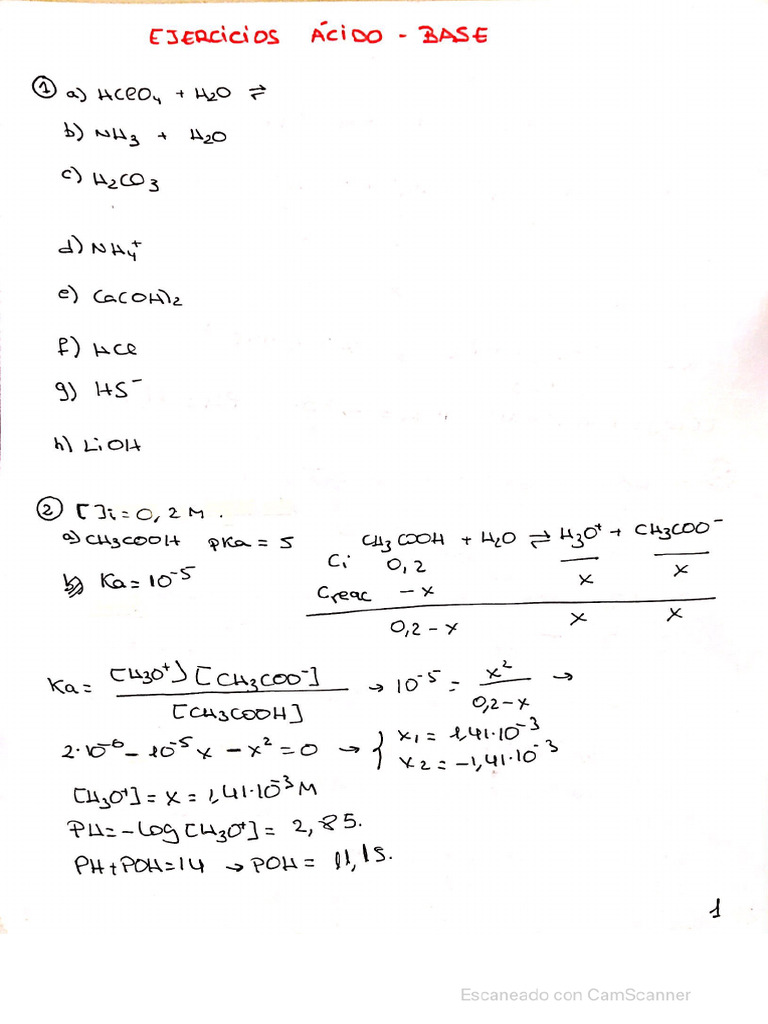 EJERCICIOS ÁCIDO - BASE
① a) HClO₄ + H₂O ⇌
b) NH₃ + H₂O
c) H₂CO₃
d) NH₄⁺
e) Ca(OH)₂
f) HCl
g) HS⁻
h) LiOH
② [ ]i = 0,2 M.
a) CH₃COOH pKa = 5 CH₃COOH + H₂O ⇌ H₃O⁺ + CH₃COO⁻
Ci 0,2 — —
Ka = 10⁻⁵ x x
Creac - x
0,2 - x x x
Ka = [H₃O⁺] [CH₃COO⁻] / [CH₃COOH] → 10⁻⁵ = x² / 0,2 - x →
2·10⁻⁶ - 10⁻⁵ x - x² = 0 → { x₁ = 1,41·10⁻³
x₂ = -1,41·10⁻³
[H₃O⁺] = x = 1,41·10⁻³ M
PH = - log [H₃O⁺] = 2,85.
PH + POH = 14 → POH = 11,15.
1
Escaneado con CamScanner